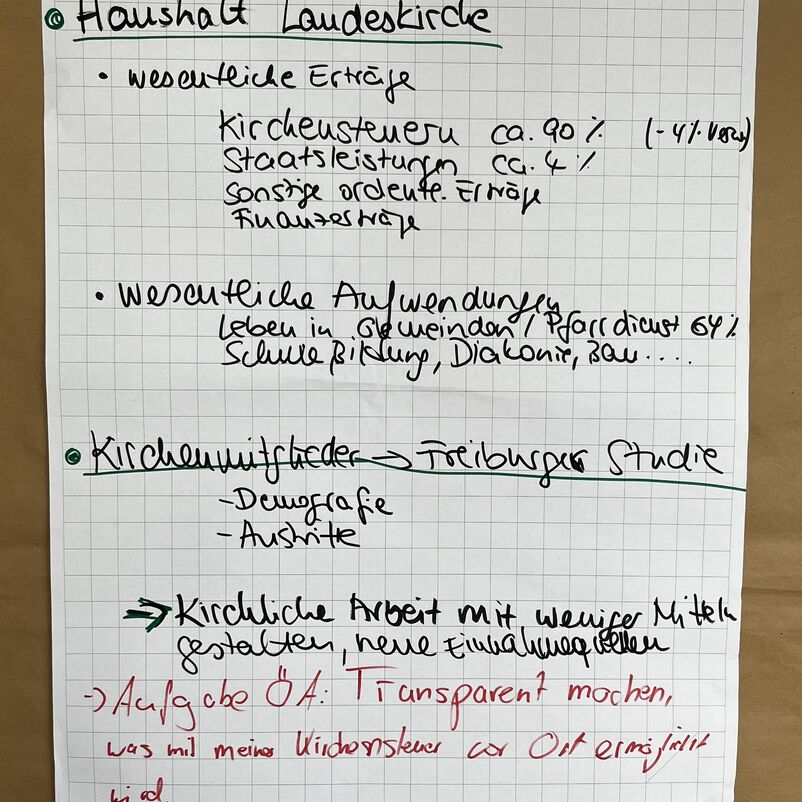 Haushalt Landeskirche
• wesentliche Erträge
Kirchensteuern ca. 90 % (-4%
Staatsleistungen ca. 4 %
sonstige ordentl. Erträge
Finanzerträge
• wesentliche Aufwendungen
Leben in Gemeinden / Pfarrdienst 64 %
Schule Bildung, Diakonie, Bau ....
Kirchenmitglieder → Freiburger Studie
- Demografie
- Austritte
⇒ Kirchliche Arbeit mit weniger Mitteln
gestalten, neue Einnahmequellen
→ Aufgabe ÖA: Transparent machen,
was mit meiner Kirchensteuer vor Ort ermöglicht
wird